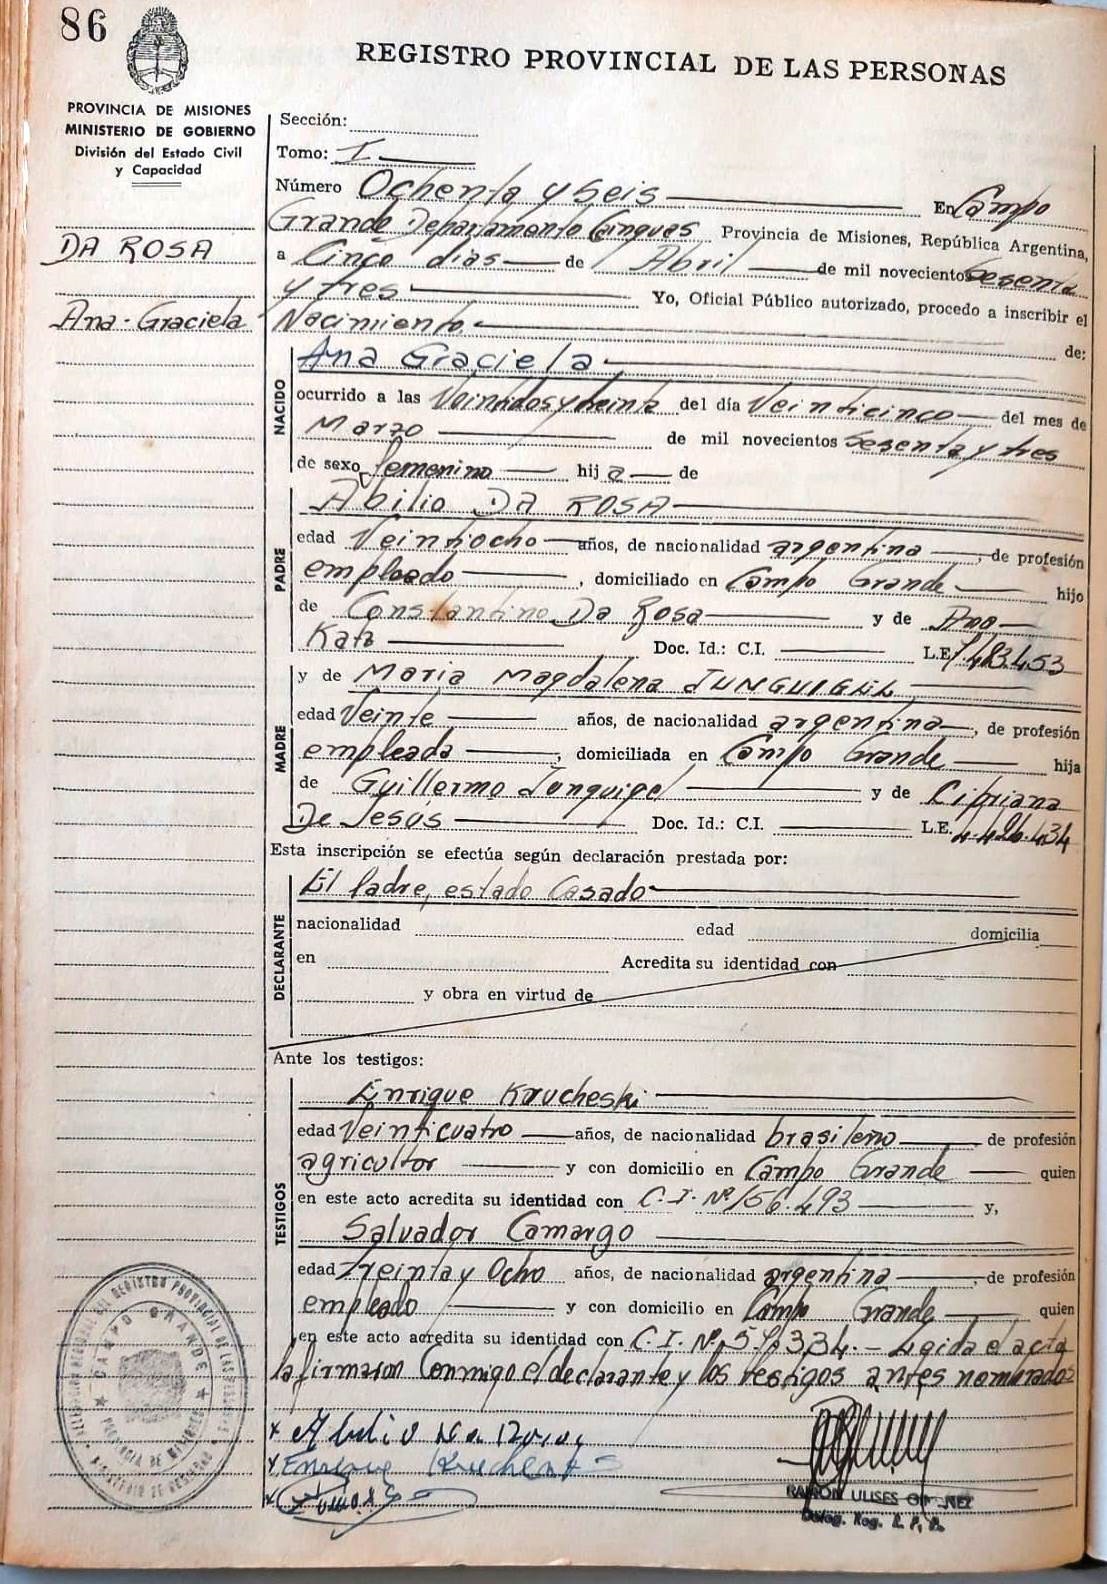 86
REGISTRO PROVINCIAL DE LAS PERSONAS
PROVINCIA DE MISIONES
MINISTERIO DE GOBIERNO
División del Estado Civil
y Capacidad
DA ROSA
Ana - Graciela
Sección:
Tomo: I
Número Ochenta y Seis En Campo
Grande Departamento Cainguas Provincia de Misiones, República Argentina,
a Cinco días de Abril de mil novecientos Sesenta
y tres Yo, Oficial Público autorizado, procedo a inscribir el
Nacimiento de:
NACIDO
Ana Graciela
ocurrido a las Veintidos y treinta del día Veinticinco del mes de
Marzo de mil novecientos Sesenta y tres
de sexo femenino hij a de
PADRE
Abilio DA ROSA
edad Veintiocho años, de nacionalidad argentina, de profesión
empleado, domiciliado en Campo Grande hijo
de Constantino Da Rosa y de Ana
Katz Doc. Id.: C.I. L.E. 7.483.453
y de Maria Magdalena JUNGUIGEL
MADRE
edad Veinte años, de nacionalidad argentina, de profesión
empleada, domiciliada en Campo Grande hija
de Guillermo Junguigel y de Cipriana
De Jesús Doc. Id.: C.I. L.E. 4.426.434
Esta inscripción se efectúa según declaración prestada por:
DECLARANTE
El Padre, estado Casado
nacionalidad edad domicilia
en Acredita su identidad con
y obra en virtud de
Ante los testigos:
TESTIGOS
Enrique Krucheski
edad Veinticuatro años, de nacionalidad brasileño de profesión
agricultor y con domicilio en Campo Grande quien
en este acto acredita su identidad con C.I. Nº 156.493 y,
Salvador Camargo
edad Treinta y Ocho años, de nacionalidad argentina, de profesión
empleado y con domicilio en Campo Grande quien
en este acto acredita su identidad con C.I. Nº 334.- Leida el acta
la firmaron Conmigo el declarante y los testigos antes nombrados
CAMPO GRANDE
PROVINCIA DE MISIONES
MINISTERIO DE GOBIERNO
REGISTRO PROVINCIAL DE LAS PERSONAS
Enrique
RAMON ULISES
Deleg. Reg. R. P. P.